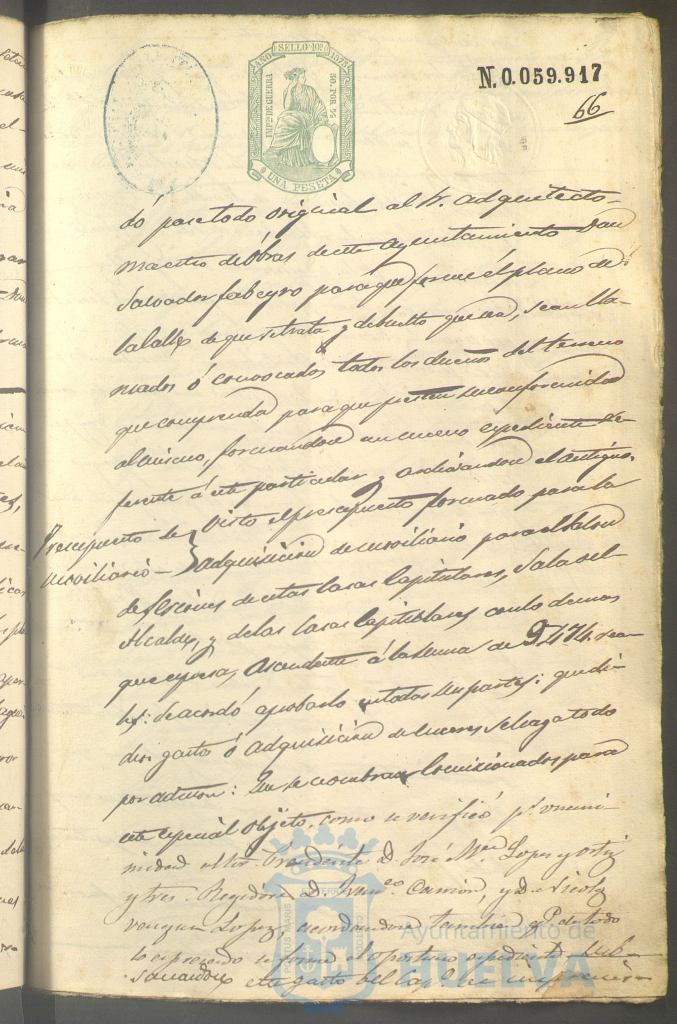 AÑO SELLO 10º 1875
IMPto DE GUERRA 50 POR %
UNA PESETA
N. 0.059.917
66
dó pase todo original al Sr. Arquitecto
maestro de Obras de este Ayuntamiento Don
Salvador para que forme el plano de
la calle de que se trata y devuelto que sea, sean lla-
mados ó convocados todos los dueños del terreno
que comprenda para que presten su conformidad
al mismo, formandose un nuevo expediente re-
ferente á este particular y archivandose el antiguo.
Presupuesto de
moviliario
Visto el presupuesto formado para la
adquisicion de moviliario para el Salon
de Sesiones de estas Casas Capitulares, Sala del
Alcalde, y de las Casas Capitulares con lo demas
que espresa, ascendente á la suma de 9.474 rea-
les: se acordó aprobarlo en todas sus partes: que di-
cho gasto ó adquisicion de enseres se haga todo
por admon: Que se nombran Comisionados para
este especial objeto, como se verificó pr. unani-
midad al Sor. Presidente D. José Mª Lopez y Ortiz
y Sres. Regidores D. Franco. Carrion, y D. Nicolas
Vazquez Lopez, acordandose tambien qe. de todo
lo espresado se forme el oportuno expediente
este gasto del Cap.
PORTUS MARIS
Ayuntamiento de
HUELVA